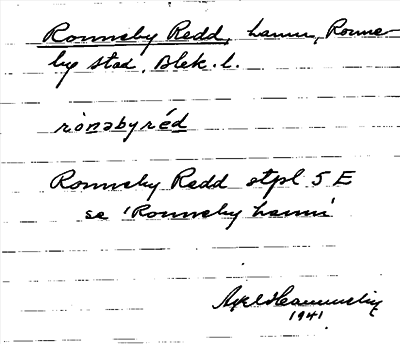 Ronneby Redd, hamn, Ronne-
by stad, Blek. l.
rònəbyréd
Ronneby Redd stpl 5 E
se 'Ronneby hamn'
Axel
1941